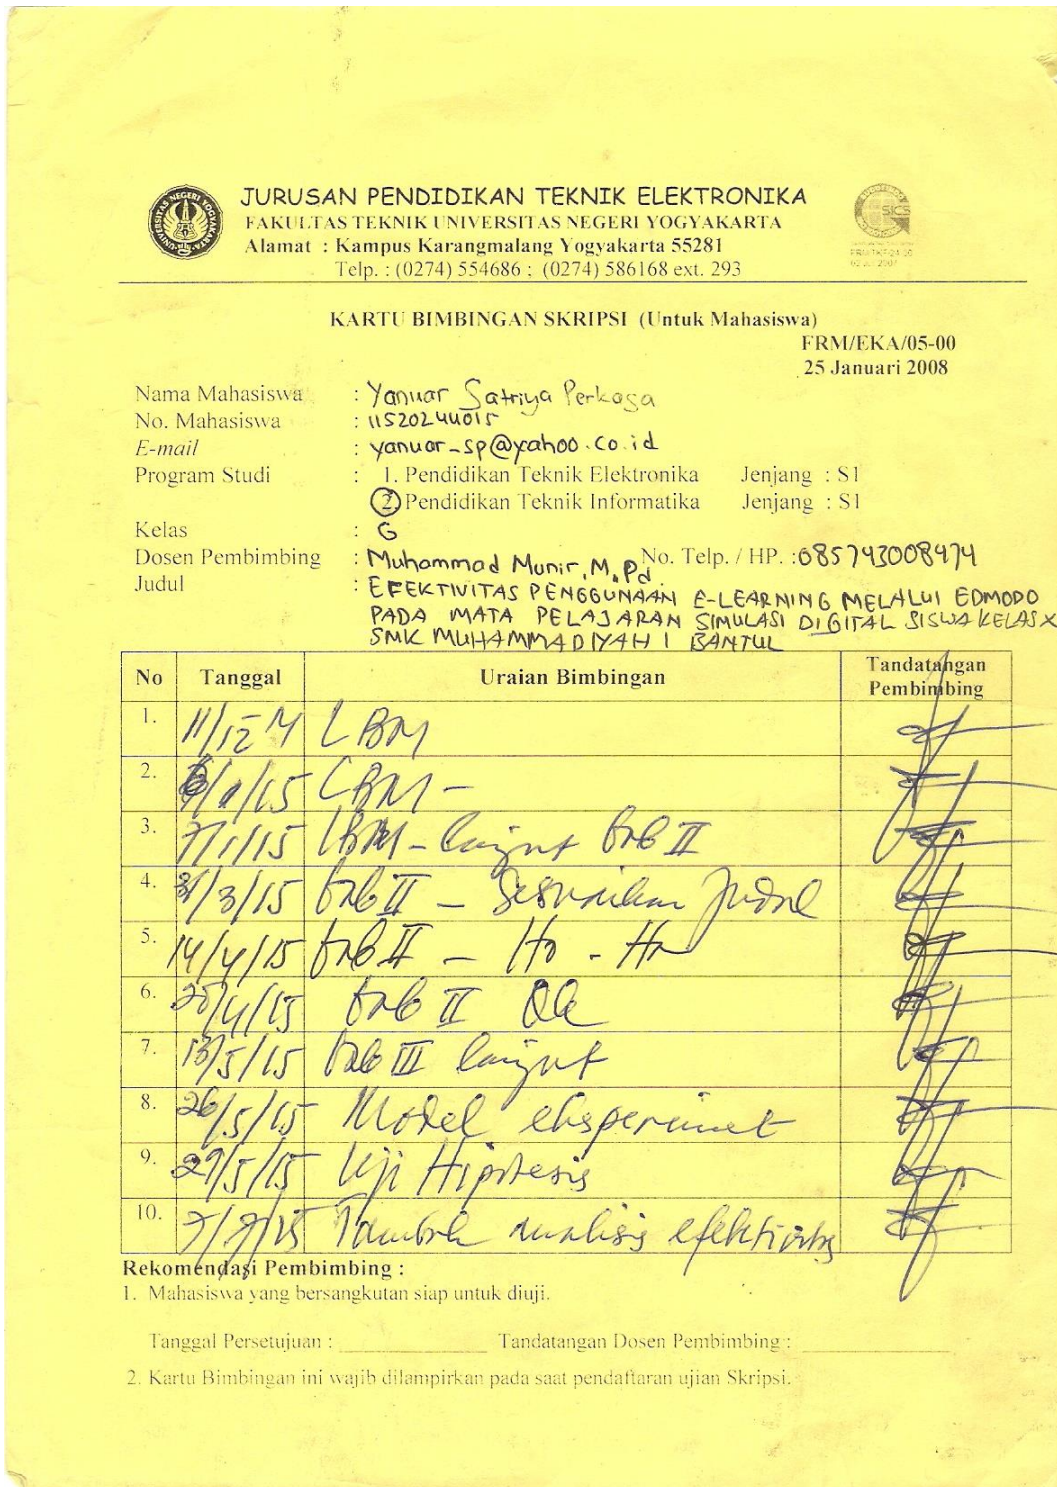 JURUSAN PENDIDIKAN TEKNIK ELEKTRONIKA
FAKULTAS TEKNIK UNIVERSITAS NEGERI YOGYAKARTA
Alamat : Kampus Karangmalang Yogyakarta 55281
Telp. : (0274) 554686 ; (0274) 586168 ext. 293
UNIVERSITAS NEGERI YOGYAKARTA
SICS
KARTU BIMBINGAN SKRIPSI (Untuk Mahasiswa)
FRM/EKA/05-00
25 Januari 2008
Nama Mahasiswa : Yanuar Satriya Perkasa
No. Mahasiswa : 11520244015
E-mail : yanuar_sp@yahoo.co.id
Program Studi : 1. Pendidikan Teknik Elektronika Jenjang : S1
2. Pendidikan Teknik Informatika Jenjang : S1
Kelas : G
Dosen Pembimbing : Muhammad Munir, M.Pd No. Telp. / HP. : 085743008474
Judul : EFEKTIVITAS PENGGUNAAN E-LEARNING MELALUI EDMODO
PADA MATA PELAJARAN SIMULASI DIGITAL SISWA KELAS X
SMK MUHAMMADIYAH 1 BANTUL
No Tanggal Uraian Bimbingan Tandatangan Pembimbing
1. 11/12 14 LBM
2. /1/15 LBM -
3. 7/1/15 LBM - lanjut bab II
4. /3/15 bab II - Sesuaikan Judul
5. 14/4/15 bab II - Ho - Ha
6. 20/4/15 bab II Ok
7. 13/5/15 bab III lanjut
8. 26/5/15 Model eksperimet
9. 29/5/15 Uji Hipotesis
10. 7/7/15 Tambah analisis efektivitas
Rekomendasi Pembimbing :
1. Mahasiswa yang bersangkutan siap untuk diuji.
Tanggal Persetujuan : Tandatangan Dosen Pembimbing :
2. Kartu Bimbingan ini wajib dilampirkan pada saat pendaftaran ujian Skripsi.